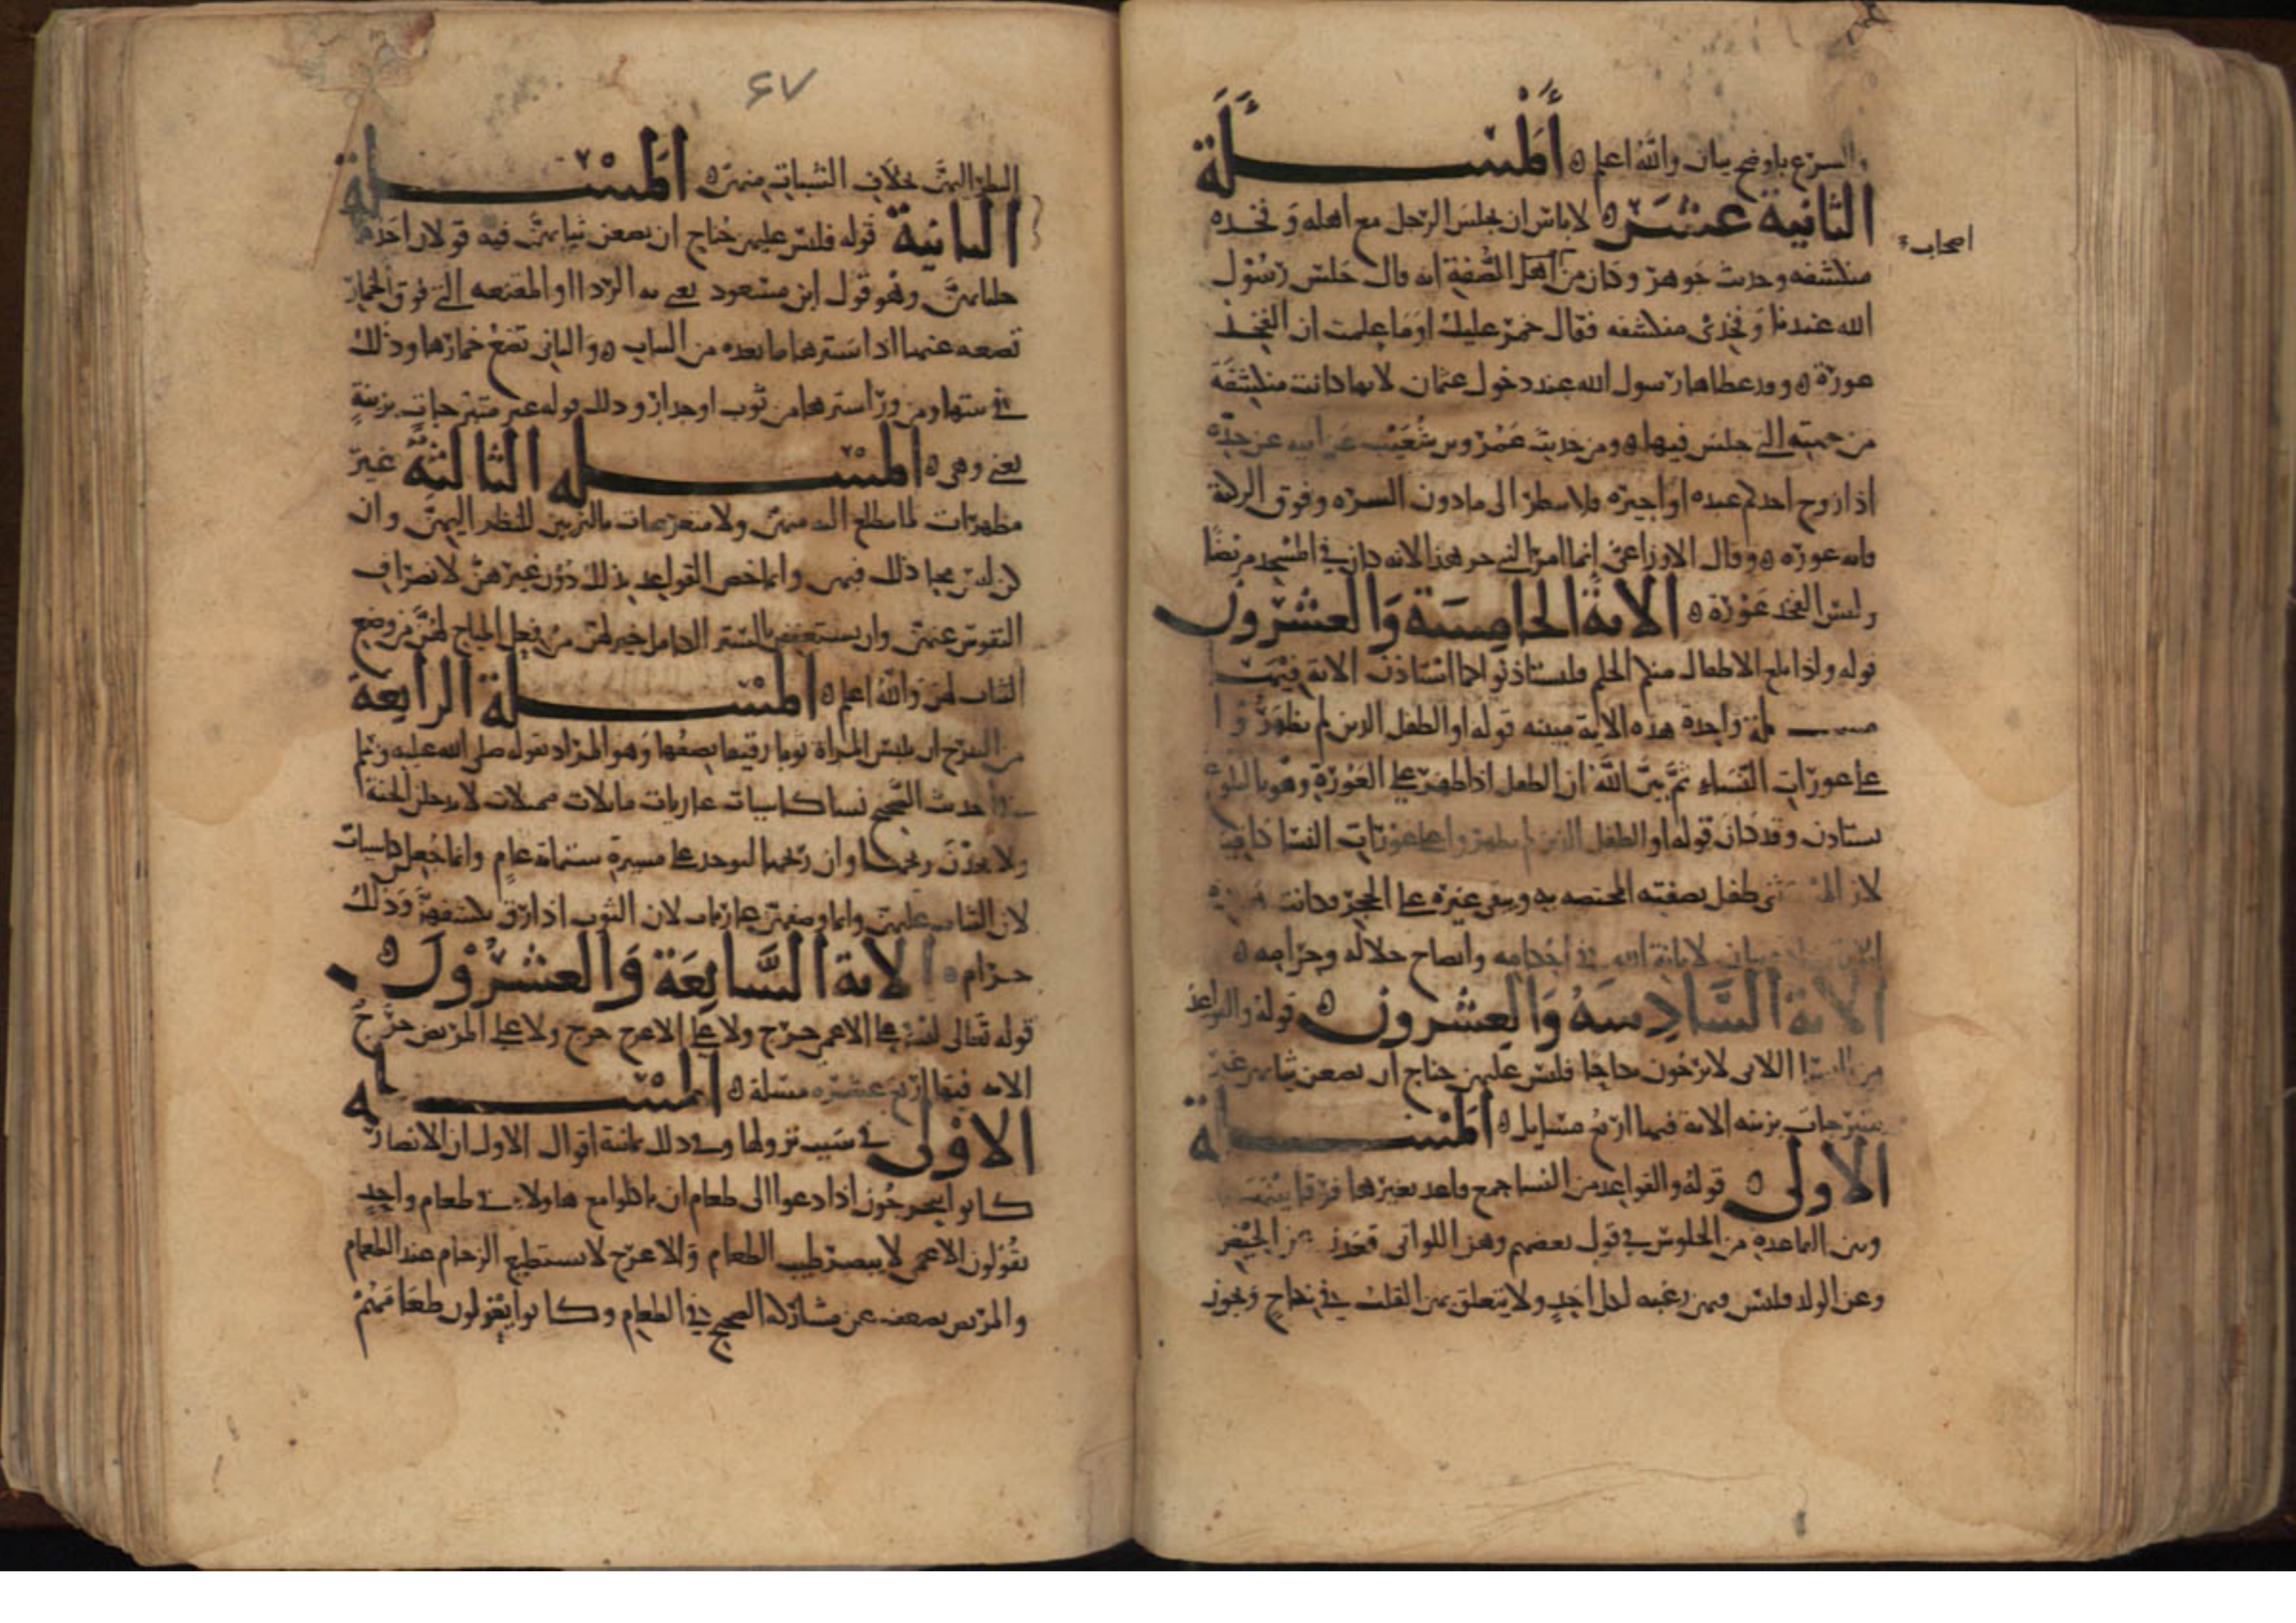 والشرع باوضح بيان والله اعلم ه المسئلة
الثانية عشر ه لا باس ان يجلس الرجل مع اهله وفخذه
اصحاب
منكشفه وحديث جرهد وكان من اهل الصفة انه قال جلس رسول
الله عندنا وفخذي منكشفه فقال خمر عليك اوما علمت ان الفخذ
عورة ه وقد غطاها رسول الله عند دخول عثمان لانها كانت منكشفة
من جهته التي جلس فيها ه ومن حديث عمرو بن شعيب عن ابيه عن جده
اذا زوج احدكم عبده او اجيره فلا ينظر الى ما دون السره وفوق الركبة
فانه عورة ه وقال الاوزاعي انما امر النبي جرهدا لانه كان في المسجد مرتضا
وليس الفخذ عورة ه الاية الخامسة والعشرون
قوله واذا بلغ الاطفال منكم الحلم فليستاذنوا كما استاذن الاية فيها
مسـ ـلة واحدة هذه الاية مبينه قوله او الطفل الذين لم يظهروا
على عورات النساء ثم بين الله ان الطفل اذا ظهر على العورة وهو بالبلوغ
يستاذن وقد كان قوله او الطفل الذين لم يظهروا على عورات النسا كافيا
لان المستثنى طفل بصفته المختصه به ويبقى غيره على الحجر وكانت
بيان لابانة الله في احكامه وايضاح حلاله وحرامه ه
الاية السادسة والعشرون ه قوله والقواعد
من النسا اللاتي لا يرجون نكاحا فليس عليهن جناح ان يضعن ثيابهن غير
متبرجات بزينه الاية فيها اربع مسايل ه المسئلة
الاولى ه قوله والقواعد من النسا جمع قاعد بغير ها فرقا بينها
وبين القاعده من الجلوس في قول بعضهم وهن اللواتي قعدن عن الحيض
وعن الولد فليس فيهن رغبه لكل احد ولا يتعلق بهن القلب في نكاح ويجوز
٤٧
النظر اليهن بخلاف الشباب منهن ه المسئلة
الثانية قوله فليس عليهن جناح ان يضعن ثيابهن فيه قولان احدهما
جلبابهن وهو قول ابن مسعود يعني به الردا او المقنعه التي فوق الخمار
تضعه عنها اذا سترها ما بعده من الثياب ه والثاني تضع خمارها وذلك
في بيتها ومن ورا سترها من ثوب او جدار وذلك قوله غير متبرجات بزينة
يعني وهي ه المسئله الثالثة غير
مظهرات لما يتطلع اليه منهن ولا متعرضات بالتزيين للنظر اليهن وان
كن ليس بمحل ذلك فيهن وانما خص القواعد بذلك دون غيرهن لانصراف
النفوس عنهن وان يستعففن بالتستر الكامل خير لهن من فعل المباح لهن من وضع
الثياب لهن والله اعلم ه المسئلة الرابعة
من التبرج ان تلبس المراة ثوبا رقيقا يصفها وهو المراد بقوله صلى الله عليه وسلم
في الحديث الصحيح نسا كاسيات عاريات مايلات مميلات لا يدخلن الجنة
ولا يجدن ريحها وان ريحها ليوجد على مسيرة ستمائة عام وانما جعلهن كاسيات
لان الثياب عليهن وانما وصفهن بعاريات لان الثوب اذا رق يكشفهن وذلك
حرام ه الاية السابعة والعشرون ه
قوله تعالى ليس على الاعمى حرج ولا على الاعرج حرج ولا على المريض حرج
الاية فيها اربع عشره مسئلة ه المسئله
الاولى في سبب نزولها وفي ذلك ثمانية اقوال الاول ان الانصار
كانوا يتحرجون اذا دعوا الى طعام ان ياكلوا مع هاولاء في طعام واحد
يقولون الاعمى لا يبصر طيب الطعام والاعرج لا يستطيع الزحام عند الطعام
والمريض يضعف عن مشاركة الصحيح في الطعام وكانوا يقولون طعامهم